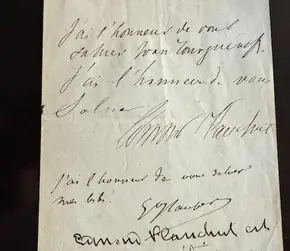 J'ai l'honneur de vous
saluer Ivan Tourguéneff.
J'ai l'honneur de vous
Saluer
Edmond Plauchut
j'ai l'honneur de vous saluer
mes bibi!
GFlaubert
Edmond Plauchut est